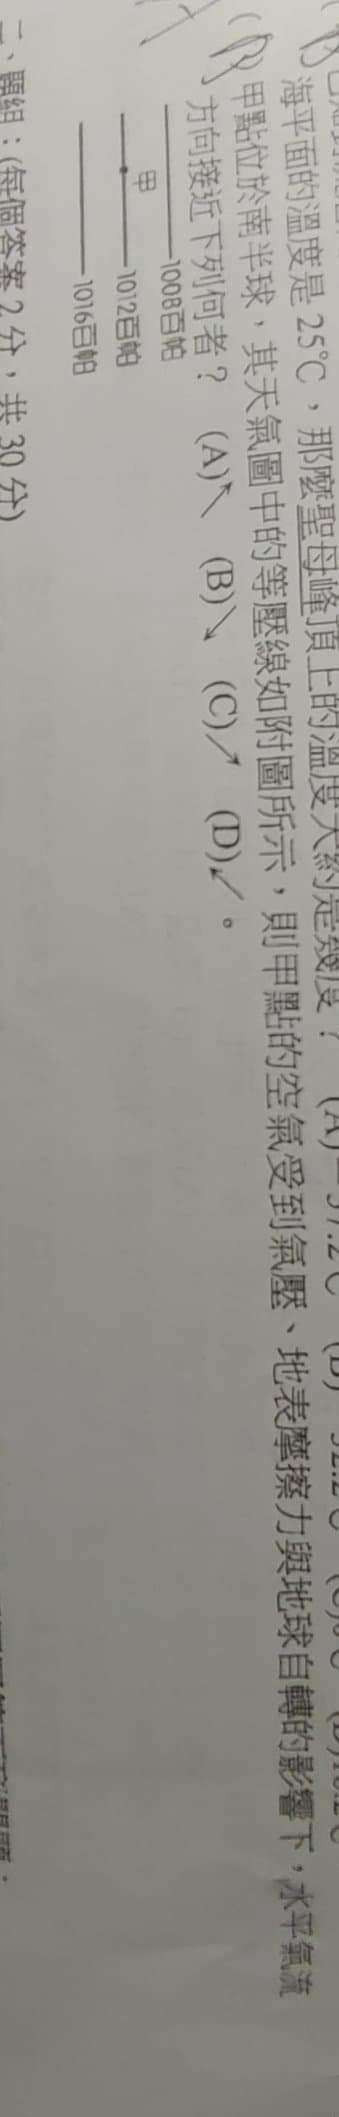 海平面的溫度是 25℃，那麼聖母峰頂上的溫度大約是幾度？ (A)－57.2℃
甲點位於南半球，其天氣圖中的等壓線如附圖所示，則甲點的空氣受到氣壓、地表摩擦力與地球自轉的影響下，水平氣流
方向接近下列何者？ (A)↖ (B)↘ (C)↗ (D)↙。
1008百帕
甲
1012百帕
1016百帕
二、題組：(每個答案 2 分，共 30 分)